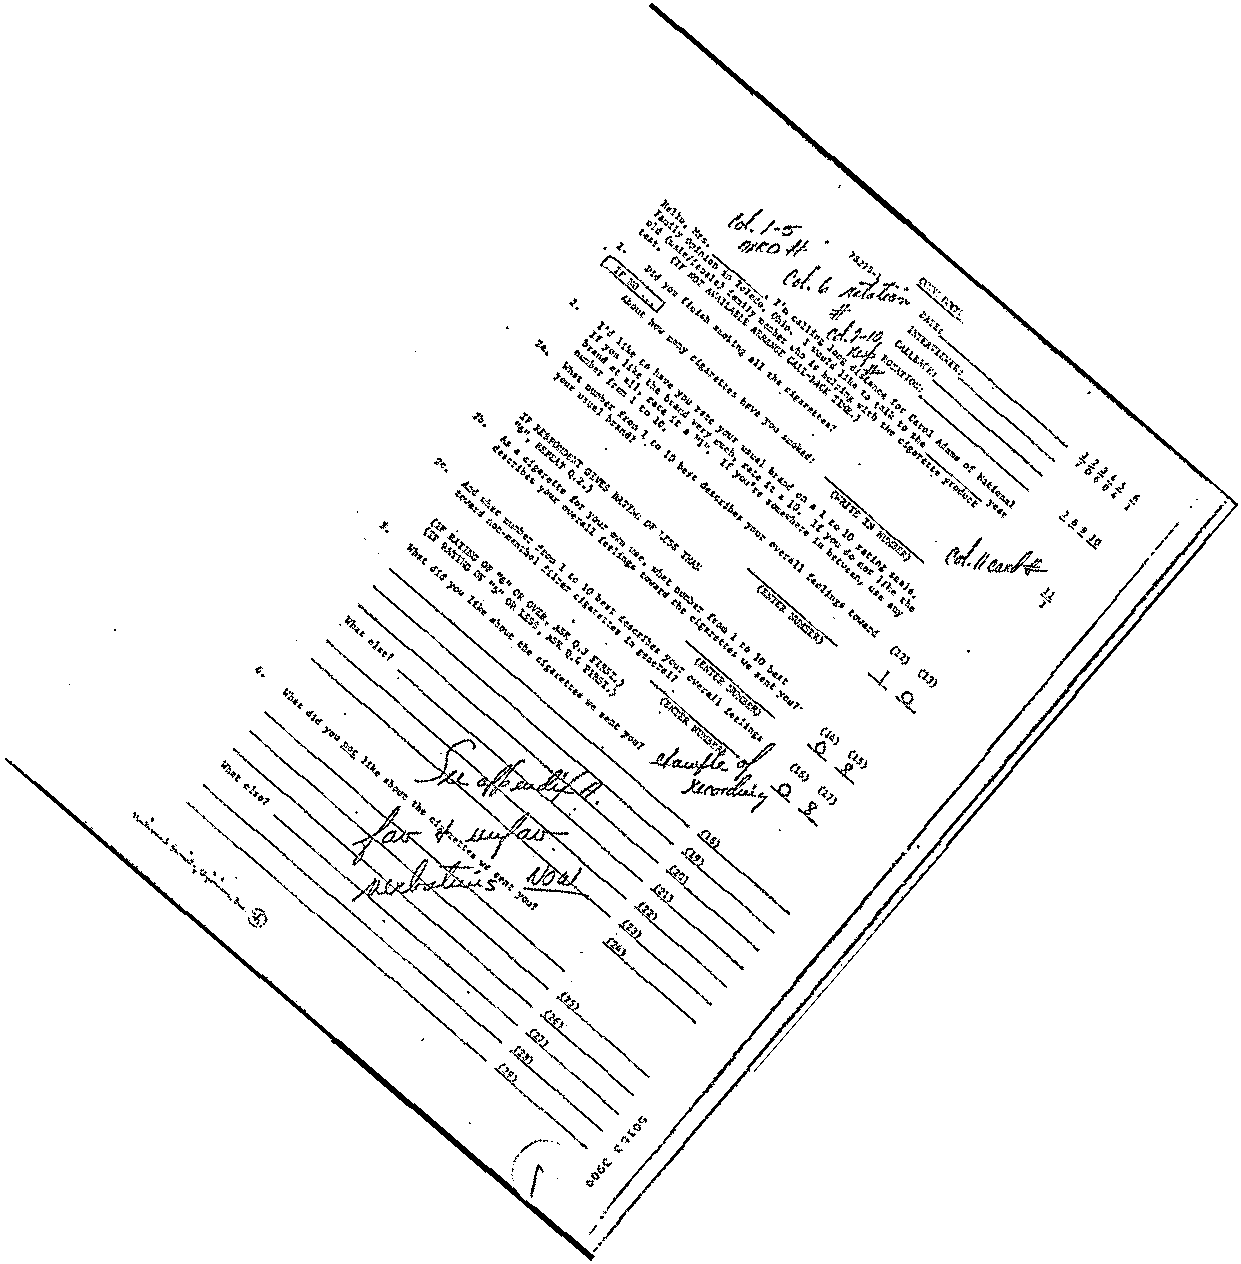 Col. 1-5
Col. 6 rotation
#
Col. 7-10
DATE:
INTERVIEWER:
CALLBACK:
ROTATION:
Hello, Mrs. I'm calling long distance for Carol Adams of National
Family Opinion in Toledo, Ohio. I would like to talk to the year
old (male/female) family member who is helping with the cigarette product
test. (IF NOT AVAILABLE ARRANGE CALL-BACK TIME.)
7 8 9 10
1. Did you finish smoking all the cigarettes?
IF NO...
About how many cigarettes have you smoked:
(WRITE IN NUMBER)
Col. 11 card #
11
2. I'd like to have you rate your usual brand on a 1 to 10 rating scale.
If you like the brand very much, rate it a 10. If you do not like the
brand at all, rate it a "1". If you're somewhere in between, use any
number from 1 to 10.
2a. What number from 1 to 10 best describes your overall feelings toward
your usual brand?
(ENTER NUMBER)
(12) (13)
1 0
IF RESPONDENT GIVES RATING OF LESS THAN
REPEAT Q.2.)
2b. As a cigarette for your own use, what number from 1 to 10 best
describes your overall feelings toward the cigarettes we sent you?
(ENTER NUMBER)
(14) (15)
0 8
2c. And what number from 1 to 10 best describes your overall feelings
toward non-menthol filter cigarettes in general?
(ENTER NUMBER)
(16) (17)
0 8
(IF RATING OF OR OVER, ASK Q.3 FIRST.)
(IF RATING OF OR LESS, ASK Q.4 FIRST.)
3. What did you like about the cigarettes we sent you?
example of
recording
(18)
(19)
(20)
(21)
What else?
(22)
(23)
(24)
See appendix A.
fav & unfav
verbatims
4. What did you not like about the cigarettes we sent you?
(25)
(26)
(27)
What else?
(28)
(29)